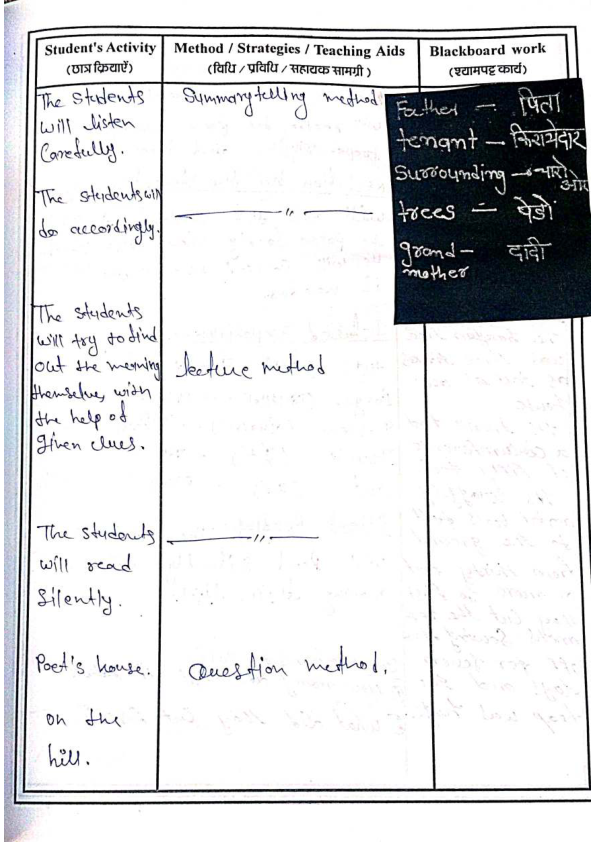 Student's Activity
(छात्र क्रियाएँ)
Method / Strategies / Teaching Aids
(विधि / प्रविधि / सहायक सामग्री )
Blackboard work
(श्यामपट्ट कार्य)
The Students
will listen
Carefully.
Summary telling method
Father — पिता
tenant — किरायेदार
Surrounding — चारों
ओर
trees — पेडों
grand- दादी
mother
The students will
do accordingly.
— " —
The students
will try to find
out the meaning
themselves, with
the help of
given clues.
lecture method
The students
will read
Silently.
— " —
Poet's house.
on the
hill.
Question method.